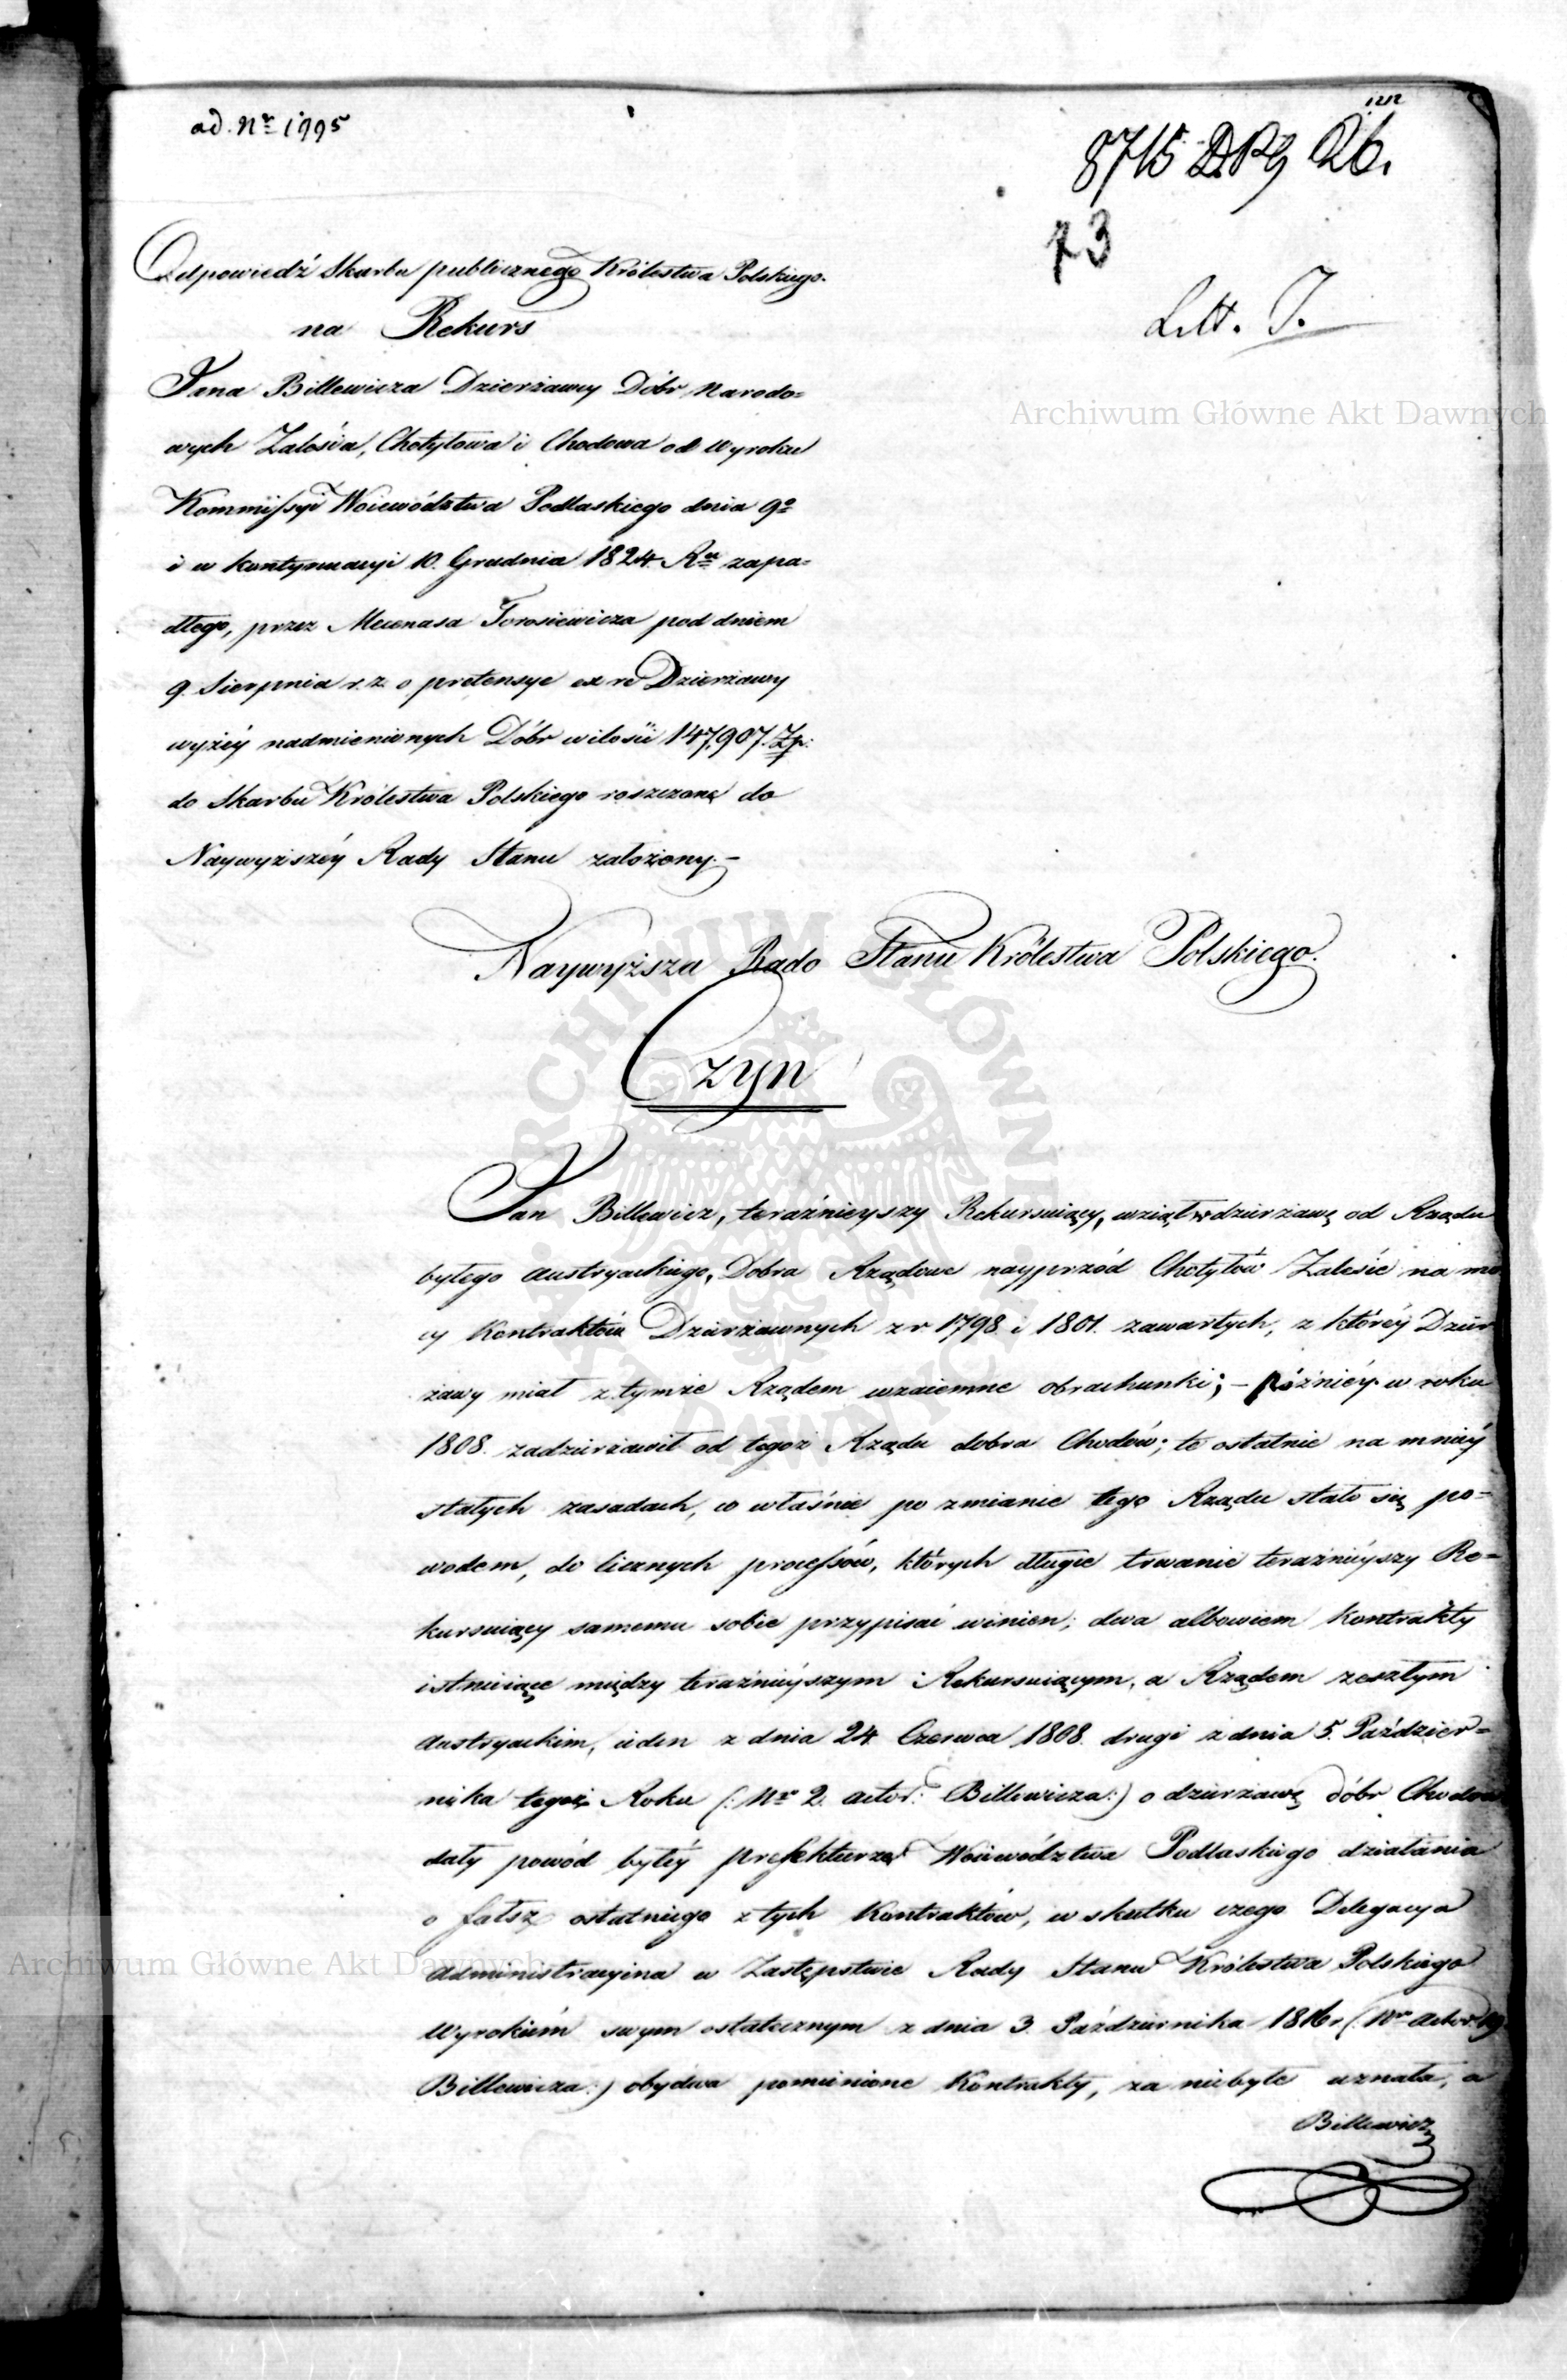 ad. Nr 1995
1212
8715 D.P.G. 26.
73
Litt. J.
Odpowiedź Skarbu publicznego Królestwa Polskiego.
na Rekurs
Jana Billewicza Dzierżawcy Dóbr Narodo=
wych Zalesia, Chotyłowa i Chodowa od Wyroku
Kommissyi Woiewództwa Podlaskiego dnia 9º
i w kontynuacyi 10. Grudnia 1824. Ru zapa=
dłego, przez Mecenasa Torosiewicza pod dniem
9. Sierpnia r. z. o pretensye ex re Dzierżawy
wyżéy nadmienionych Dóbr w ilości 147,907. Zp:
do Skarbu Królestwa Polskiego roszczoną do
Naywyższéy Rady Stanu założony.–
Naywyższa Rado Stanu Królestwa Polskiego.
Czyn
Jan Billewicz, teraźnieyszy Rekursuiący, wziął w dzierżawę od Rządu
byłego Austryackiego, Dobra Rządowe nayprzód Chotyłów Zalesie na mo
cy Kontraktów Dzierżawnych z r. 1798 i 1801. zawartych, z któréy Dzier
żawy miał z tymże Rządem wzaiemne obrachunki; – późniéy w roku
1808. zadzierżawił od tegoż Rządu dobra Chodów; te ostatnie na mniéy
stałych zasadach, co właśnie po zmianie tego Rządu stało się po=
wodem, do licznych processów, których długie trwanie teraźnieyszy Re=
kursuiący samemu sobie przypisać winien; dwa albowiem Kontrakty
istnieiące między teraźnieyszym Rekursuiącym, a Rządem zeszłym
Austryackim, ieden z dnia 24. Czerwca 1808. drugi z dnia 5. Paździer=
nika tegoż Roku (: Nr 2. actor: Billewicza:) o dzierżawę dóbr Chodow
dały powód byłéy prefekturze Woiewództwa Podlaskiego działania
o fałsz ostatniego z tych Kontraktów, w skutku czego Delegacya
Administracyina w Zastępstwie Rady Stanu Królestwa Polskiego
Wyrokiem swym ostatecznym z dnia 3. Października 1816 r. (: Nr actor:
Billewicza:) obydwa pomienione Kontrakty, za niebyłe uznała, a
Billewicz
Archiwum Główne Akt Dawnych
Archiwum Główne Akt Dawnych
ARCHIWUM GŁÓWNE AKT DAWNYCH